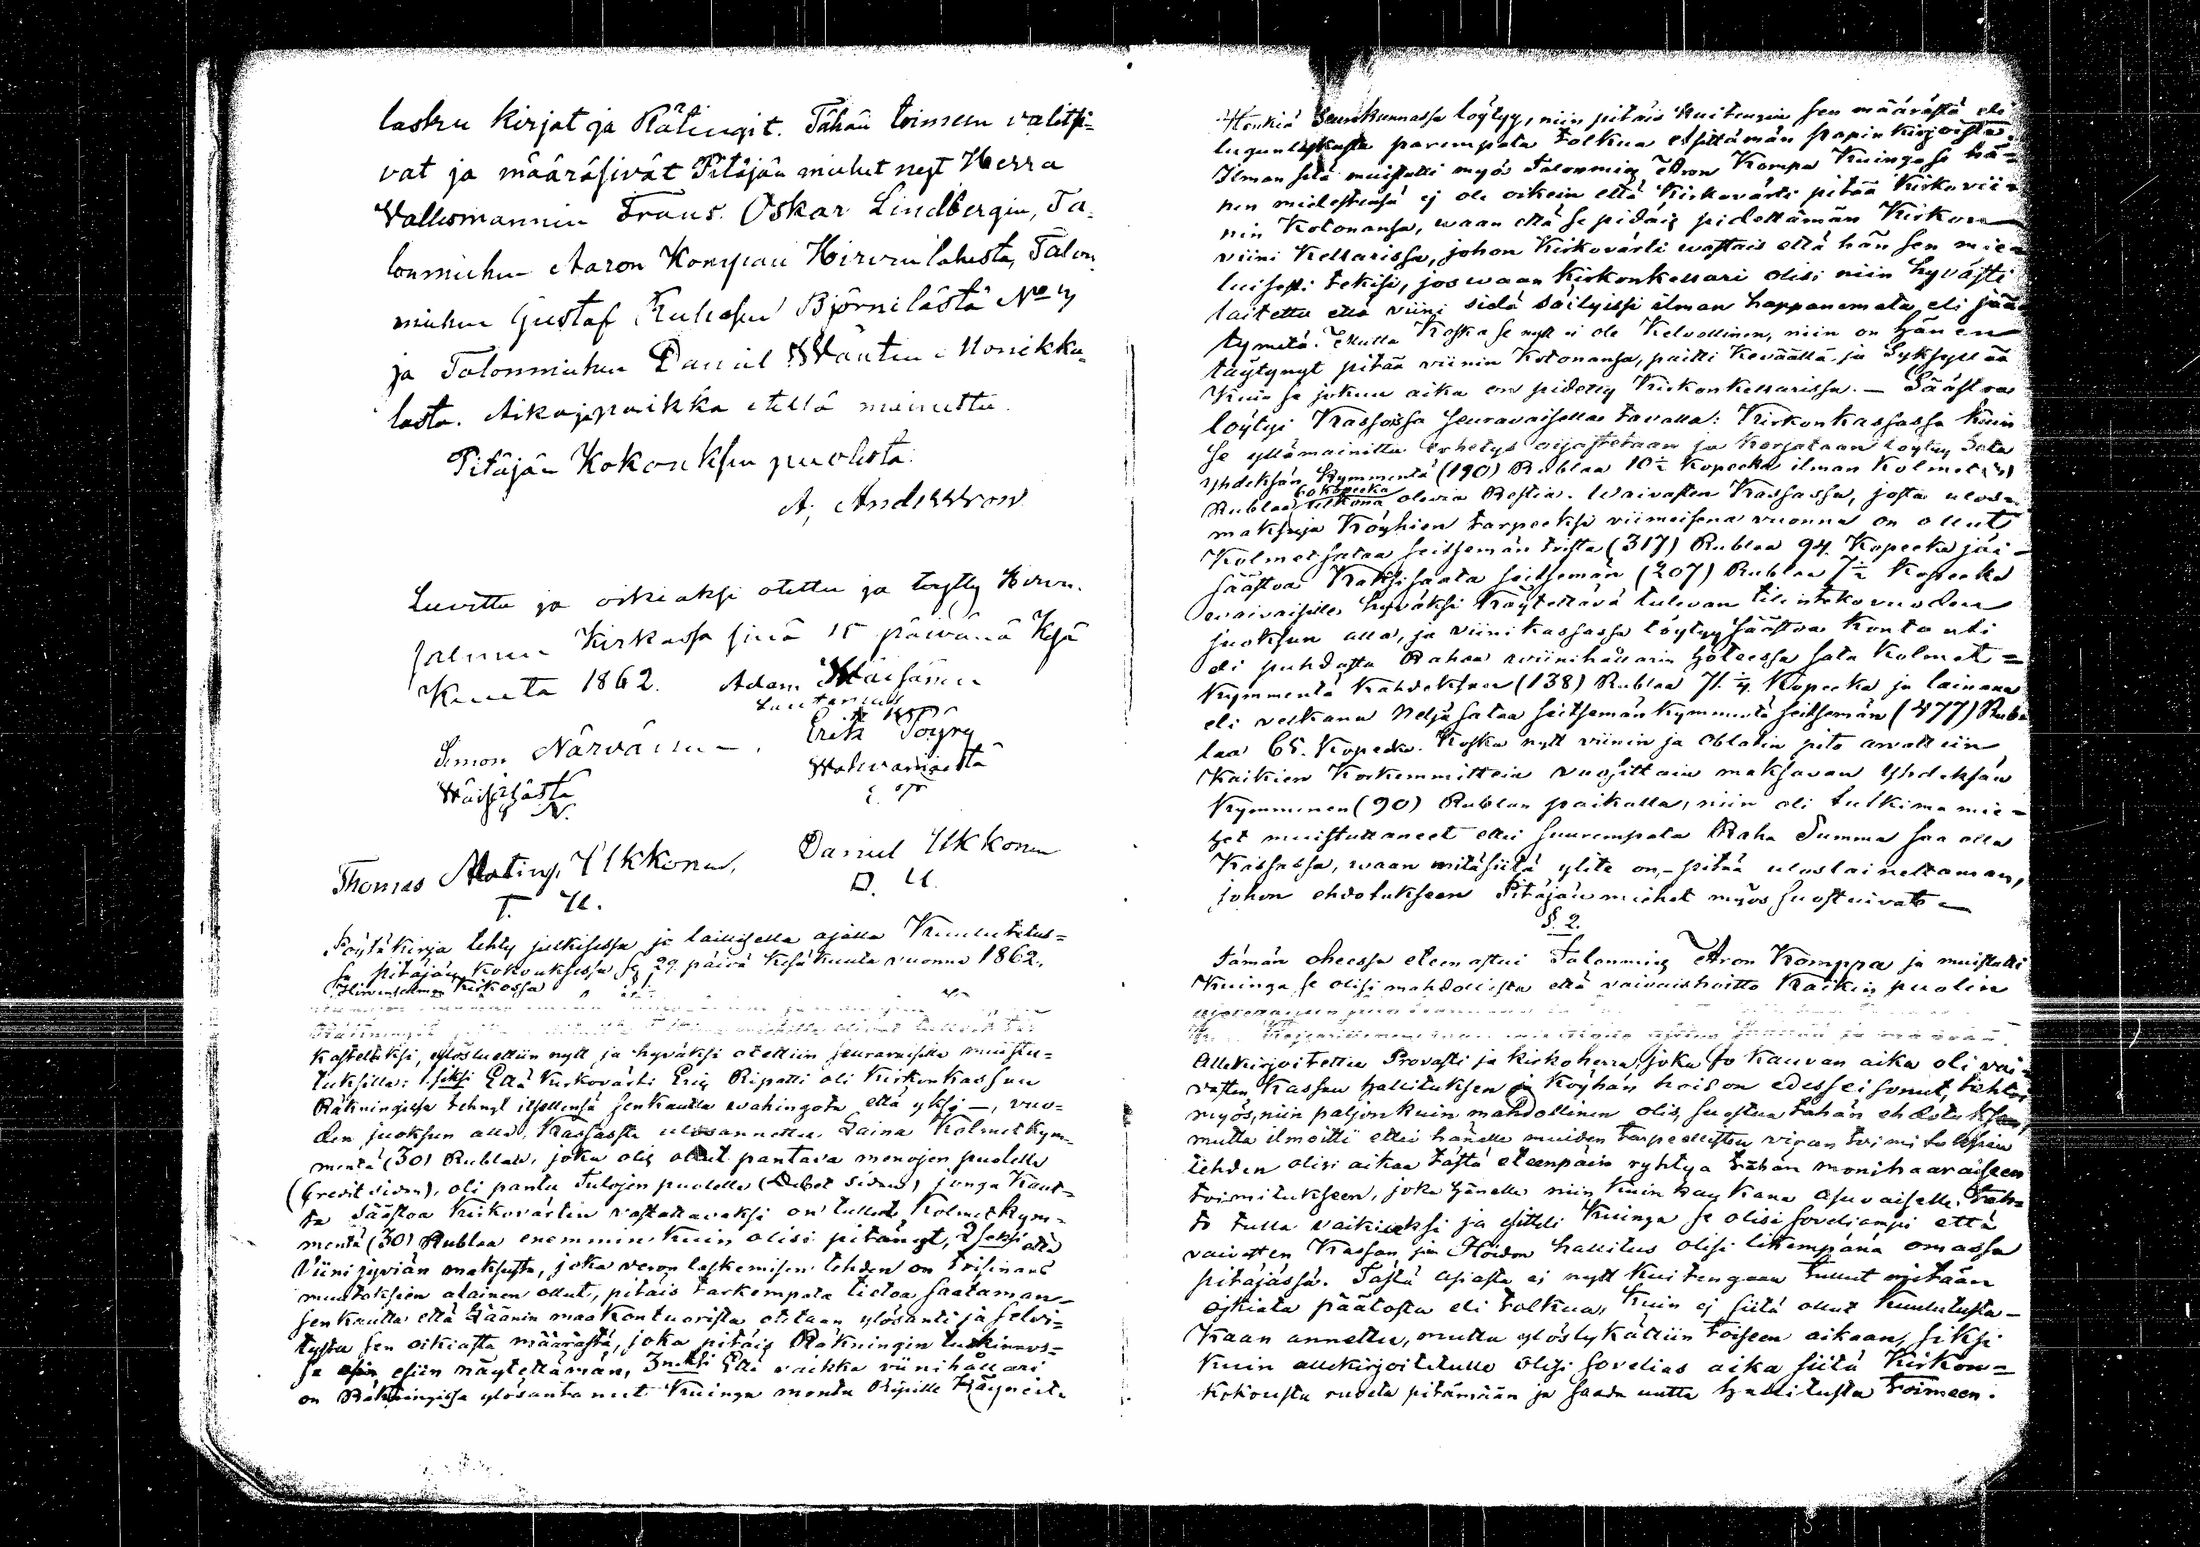 lasku kirjat ja Rätingit. Tähän toimeen valitsi=
vat ja määräsivät Pitäjän miehet nyt Herra
Vallesmannin Frans. Oskar Lindbergin, Ta=
lonmiehen Aaron Kompan Hirvenlahesta, Talon
miehen Gustaf Björnilästä No 7
ja Talonmiehen Daniel Monikka=
lasta. Aika ja paikka ennen mainittu.
Pitäjän Kokouksen puolesta:
A. Andersson
Luettu ja oikiaksi otettu ja Hirven
salmen Kirkossa sinä 15 päivänä Kesä
Kuuta 1862. Adam Väisänen
Lautamies
Simon Närväinen. Erik Pöyry
Wahvamäestä
E. P.
S. N.
Thomas Ukkonen, Daniel Ukkonen
T. U. D. U.
Pöytäkirja tehty julkisessa ja laillisella ajalla Kuulutetus=
sa pitäjän Kokouksessa se 29 päivä Kesäkuuta vuonna 1862.
Hirvensalmen Kirkossa
§ 1.
kasteluksi, ylösluettiin nytt ja hyväksi otettiin seuravaisilla muistu=
tuksilla: 1. siksi Että Kirkovärti Eric Ripatti oli Kirkonkassan
Räkningissa tehnyt itsellensä senkautta wahingota että yksi —, vuo=
den juoksun alla, Kassasta ulosannettu Laina Kolmetkym=
mentä (30) Rublaa, joka olis ollut pantava menojen puolelle
(Credit sidan), oli pantu Tulojen puolelle (Debet sidan) jonga Kaut=
ta Säästöä Kirkovärtin vastattavaksi on tullut Kolmetkym=
mentä (30) Rublaa enemmin Kuin olisi pitänyt, 2seksi että
Viini jyvään maksusta, joka veron laskemisen tehden on
muutoksien alainen ollut, pitäis tarkempata tietoa saataman
senkautta että Läänin maa Konttuorista otetaan ylösanti ja selvi=
tystä sen oikiasta määrästä, joka pitäis Räkningin tutkinnos=
sa esiin näytettämän, 3neksi Että vaikka viinihallari
on Räkningissa ylösantanut Kuinga monta Ripille Käyneitä
Henkiä Seurakunnassa löytyy, niin pitäis Kuitengin sen määrästä eli
lugunlaskusta parempata tolkua esittämän papin kirjoista.
Ilman sitä muistutti myös Talonmies Aron Kompa Kuingas hä=
nen mielestensä ej ole oikein että Kirkovärti pitää Kirkovii=
nin Kotonansa, waan että se pidäis pidettämän Kirkon
viini Kellarissa, johon Kirkovärti wastais että hän sen mie=
luisesti tekisi, jos waan Kirkonkellari olisi niin hyvästi
laitettu että viini siellä säilyissi ilman happanemata eli jää=
tymätä. Mutta Koska se nytt ei ole Kelvollinen, niin on hänen
täytynyt pitää viinin Kotonansa, paitti Keväällä ja Syksyllä
Kuin se jokuu aika on pidetty Kirkonkellarissa. — Säästöä
löytyi Kassoissa seuravaisella tavalla: Kirkonkassassa Kuin
se yllämainittu erhetys ojastetaan ja korjataan löytyy Sata
Yhdeksän Kymmentä (190) Rublaa 10½ Kopeeka ilman Kolmet
Rublaa 60 Kopeeka velkona olevia Restia. Waivasten Kassassa, josta ulos=
maksuja Köyhien tarpeeksi viimeisenä vuonna on ollut
Kolmet sataa seitsemän toista (317) Rublaa 94. Kopeeka jäi
Säästöä Kaksisaata seitsemän (207) Rublaa 7½ Kopeeka
waivaisille hyväksi Käytettävä tulevan tilinteko vuoden
juoksun alla, ja viinikassassa löytyy Säästöä Kontanti
eli puhdasta Rahaa viinihallarin hoteessa sata Kolmet=
Kymmentä Kahdeksan (138) Rublaa 71.¼. Kopeeka ja lainana
eli velkana Neljä sataa seitsemänkymmentä seitsemän (477) Rub=
laa 65. Kopeeka. Koska nytt viinin ja Oblatin pito arveltiin
Kaikkien Korkemmittein vuosittain maksavan Yhdeksän
Kymmenen (90) Rublan paikalla, niin oli tutkima mie=
het muistuttaneet ettei suurempata Raha Summa saa olla
Kassassa, waan mitä siitä ylite on, pitää uloslainattaman,
johon ehdotukseen Pitäjän miehet myös suostuivat. —
§. 2.
Tämän oheessa eteen astui Talonmies Aron Komppa ja muistutti
Kuinga se olisi mahdollista että vaivaishoitto Kaikin puolin
Allekirjoitettu Provasti ja kirkoherra, joka jo Kauvan aika oli vai=
vasten Kassan hallituksen ja Köyhän hoidon edesseisonut, tahtoi
myös, niin paljon kuin mahdollinen olis, suostua tähän ehdotukseen,
mutta ilmoitti ettei hänelle muiden tarpeellisten viran toimituksien
tehden olisi aikaa tästä eteenpäin ryhtyä tähän monihaaraiseen
toimitukseen, joka hänelle niin Kuin kaukana asuvaiselle, tah=
to tulla vaikiaksi ja esitteli Kuinga se olisi soveliampi että
vaivasten Kassan ja Hoidon hallitus olisi likempänä omassa
pitäjässä. Tästä asiasta ei nytt Kuitengaan tullut mitään
oikiata päätöstä eli tolkua, Kuin ej siitä ollut Kuulutusta=
Kaan annettu, mutta ylöslykättiin toiseen aikaan, siksi
kuin allekirjoitetulle olisi sovelias aika siitä Kirkon=
kokousta ruveta pitämään ja saada uutta hallitusta toimeen.